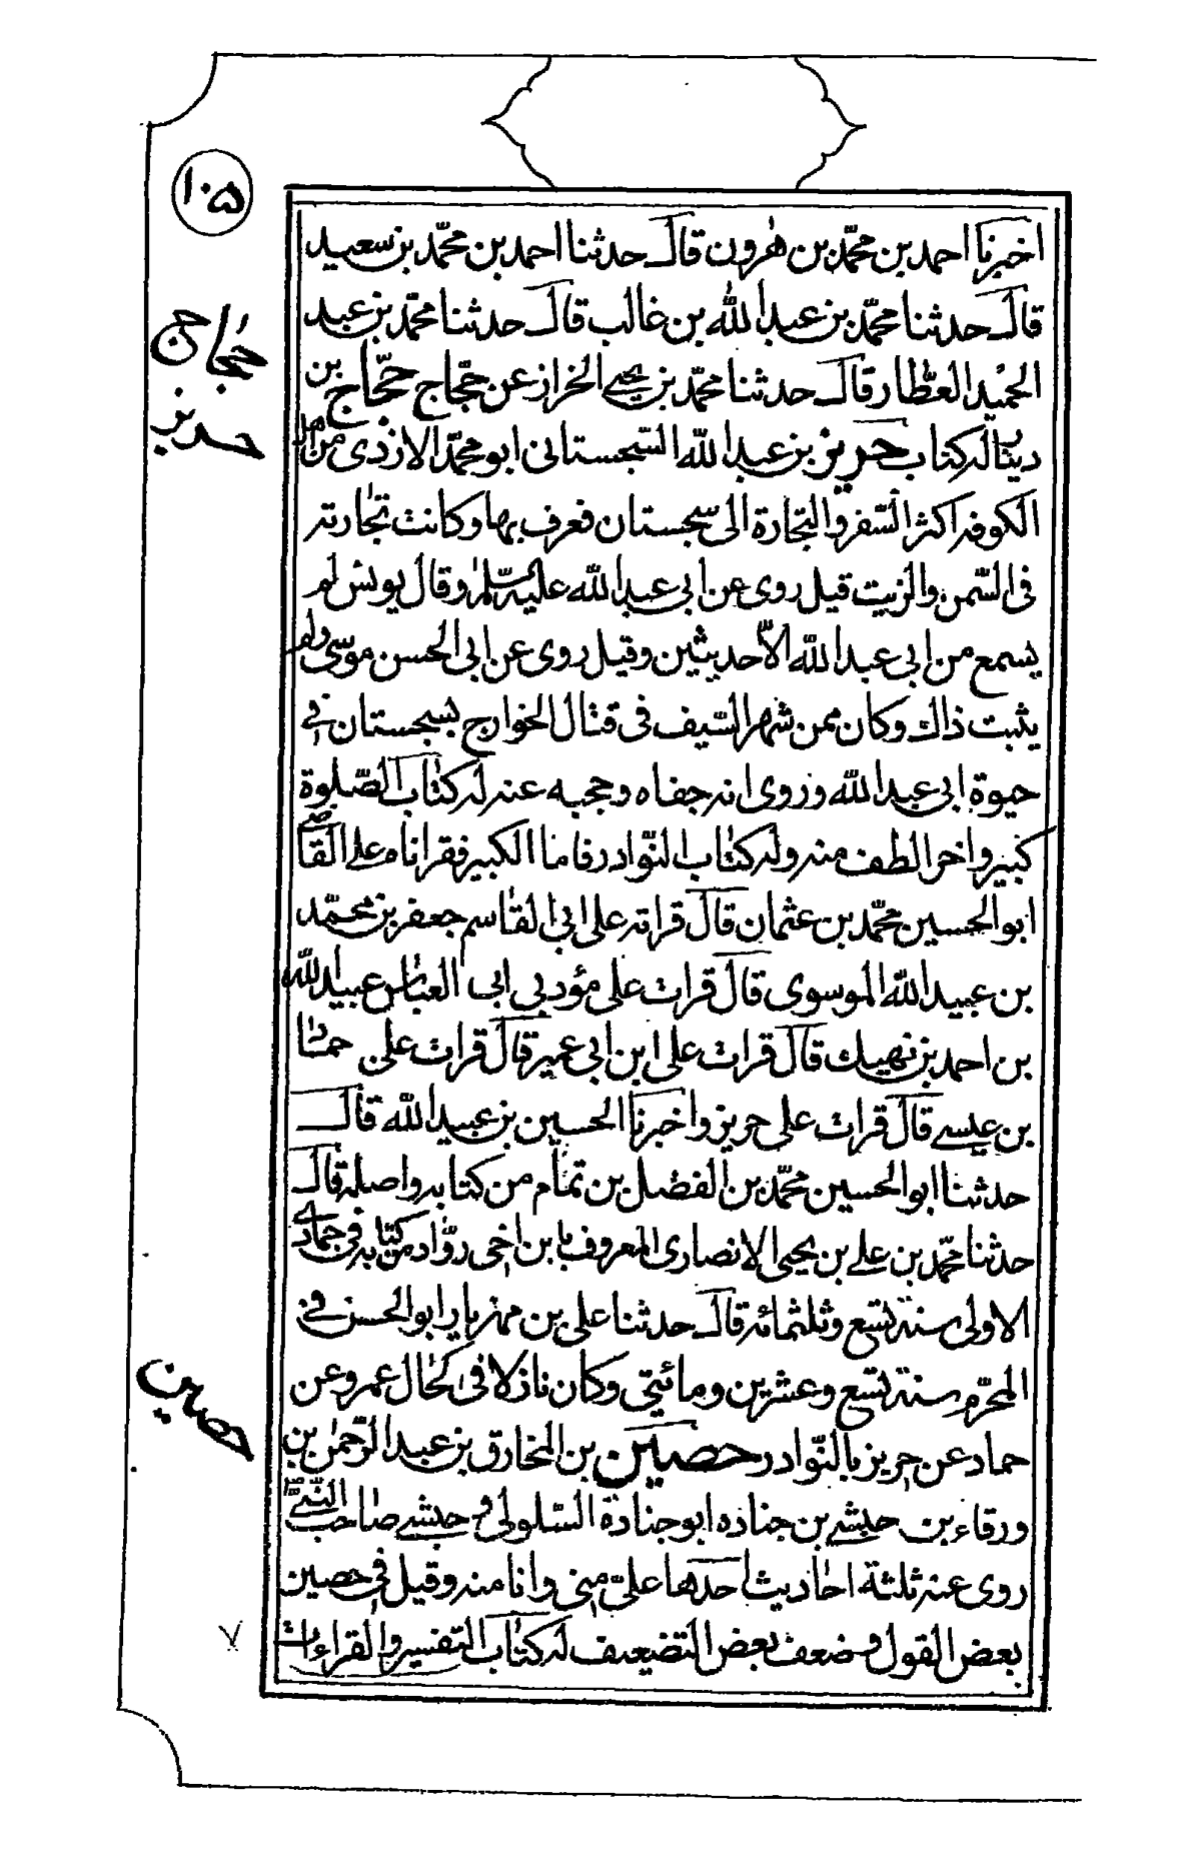 ١٠۵
اخبرنا احمد بن محمّد بن هٰرون قال حدثنا احمد بن محمّد بن سعيد
قال حدثنا محمّد بن عبد الله بن غالب قال حدثنا محمّد بن عبد
الحميد العطّار قال حدثنا محمّد بن يحيى الخراز عن حجّاج حجّاج بن
دينار له كتاب حريز بن عبد الله السّجستانى ابو محمّد الازدى من اهل
الكوفه اكثر السّفر والتجارة الى سجستان فعرف بها وكانت تجارته
فى السّمن والزيت قيل روى عن ابى عبد الله عليه السّلم وقال يونس لم
يسمع من ابى عبد الله الّا حديثين وقيل روى عن ابى الحسن موسى ولم
يثبت ذاك وكان ممن شهر السّيف فى قتال الخوارج بسجستان فى
حيوة ابى عبد الله وروى انه جفاه وحجبه عنه له كتاب الصّلوة
كبير واخر الطف منه وله كتاب النّوادر فاما الكبير فقراناه على القاضى
ابو الحسين محمّد بن عثمان قال قراته على ابى القاسم جعفر بن محمّد
بن عبيد الله الموسوى قال قرات على مؤدبى ابى العباس عبيد الله
بن احمد بن نهيك قال قرات على ابن ابى عمير قال قرات على حماد
بن عيسى قال قرات على حريز واخبرنا الحسين بن عبيد الله قال
حدثنا ابو الحسين محمّد بن الفضل بن تمام من كتابه واصله قال
حدثنا محمّد بن على بن يحيى الانصارى المعروف بابن اخى روّاد من كتابه فى جمادى
الاولى سنة تسع وثلثمائه قال حدثنا على بن مهزيار ابو الحسن فى
المحرّم سنة تسع وعشرين ومائيتى وكان نازلا فى خال عمرو عن
حماد عن حريز بالنّوادر حصين بن المخارق بن عبد الرّحمٰن بن
ورقاء بن حبشى بن جناده ابو جنادة السّلولى و حبشى صاحب النّبىّ
روى عنه ثلثة احاديث احدها علىّ منى وانا منه وقيل فى حصين
بعض القول وضعف بعض التضعيف له كتاب التفسير والقراءات
حجاج
حريز
حصين
٧